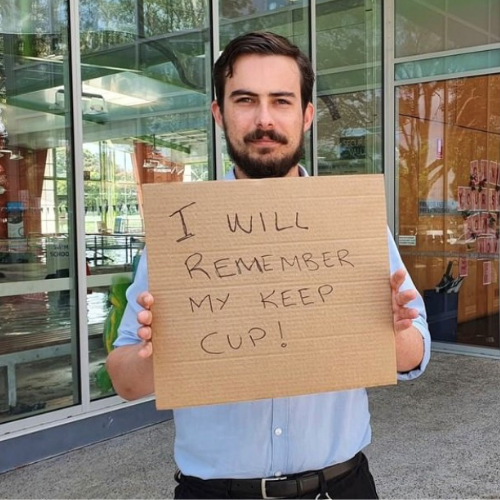 I WILL
REMEMBER
MY KEEP
CUP!